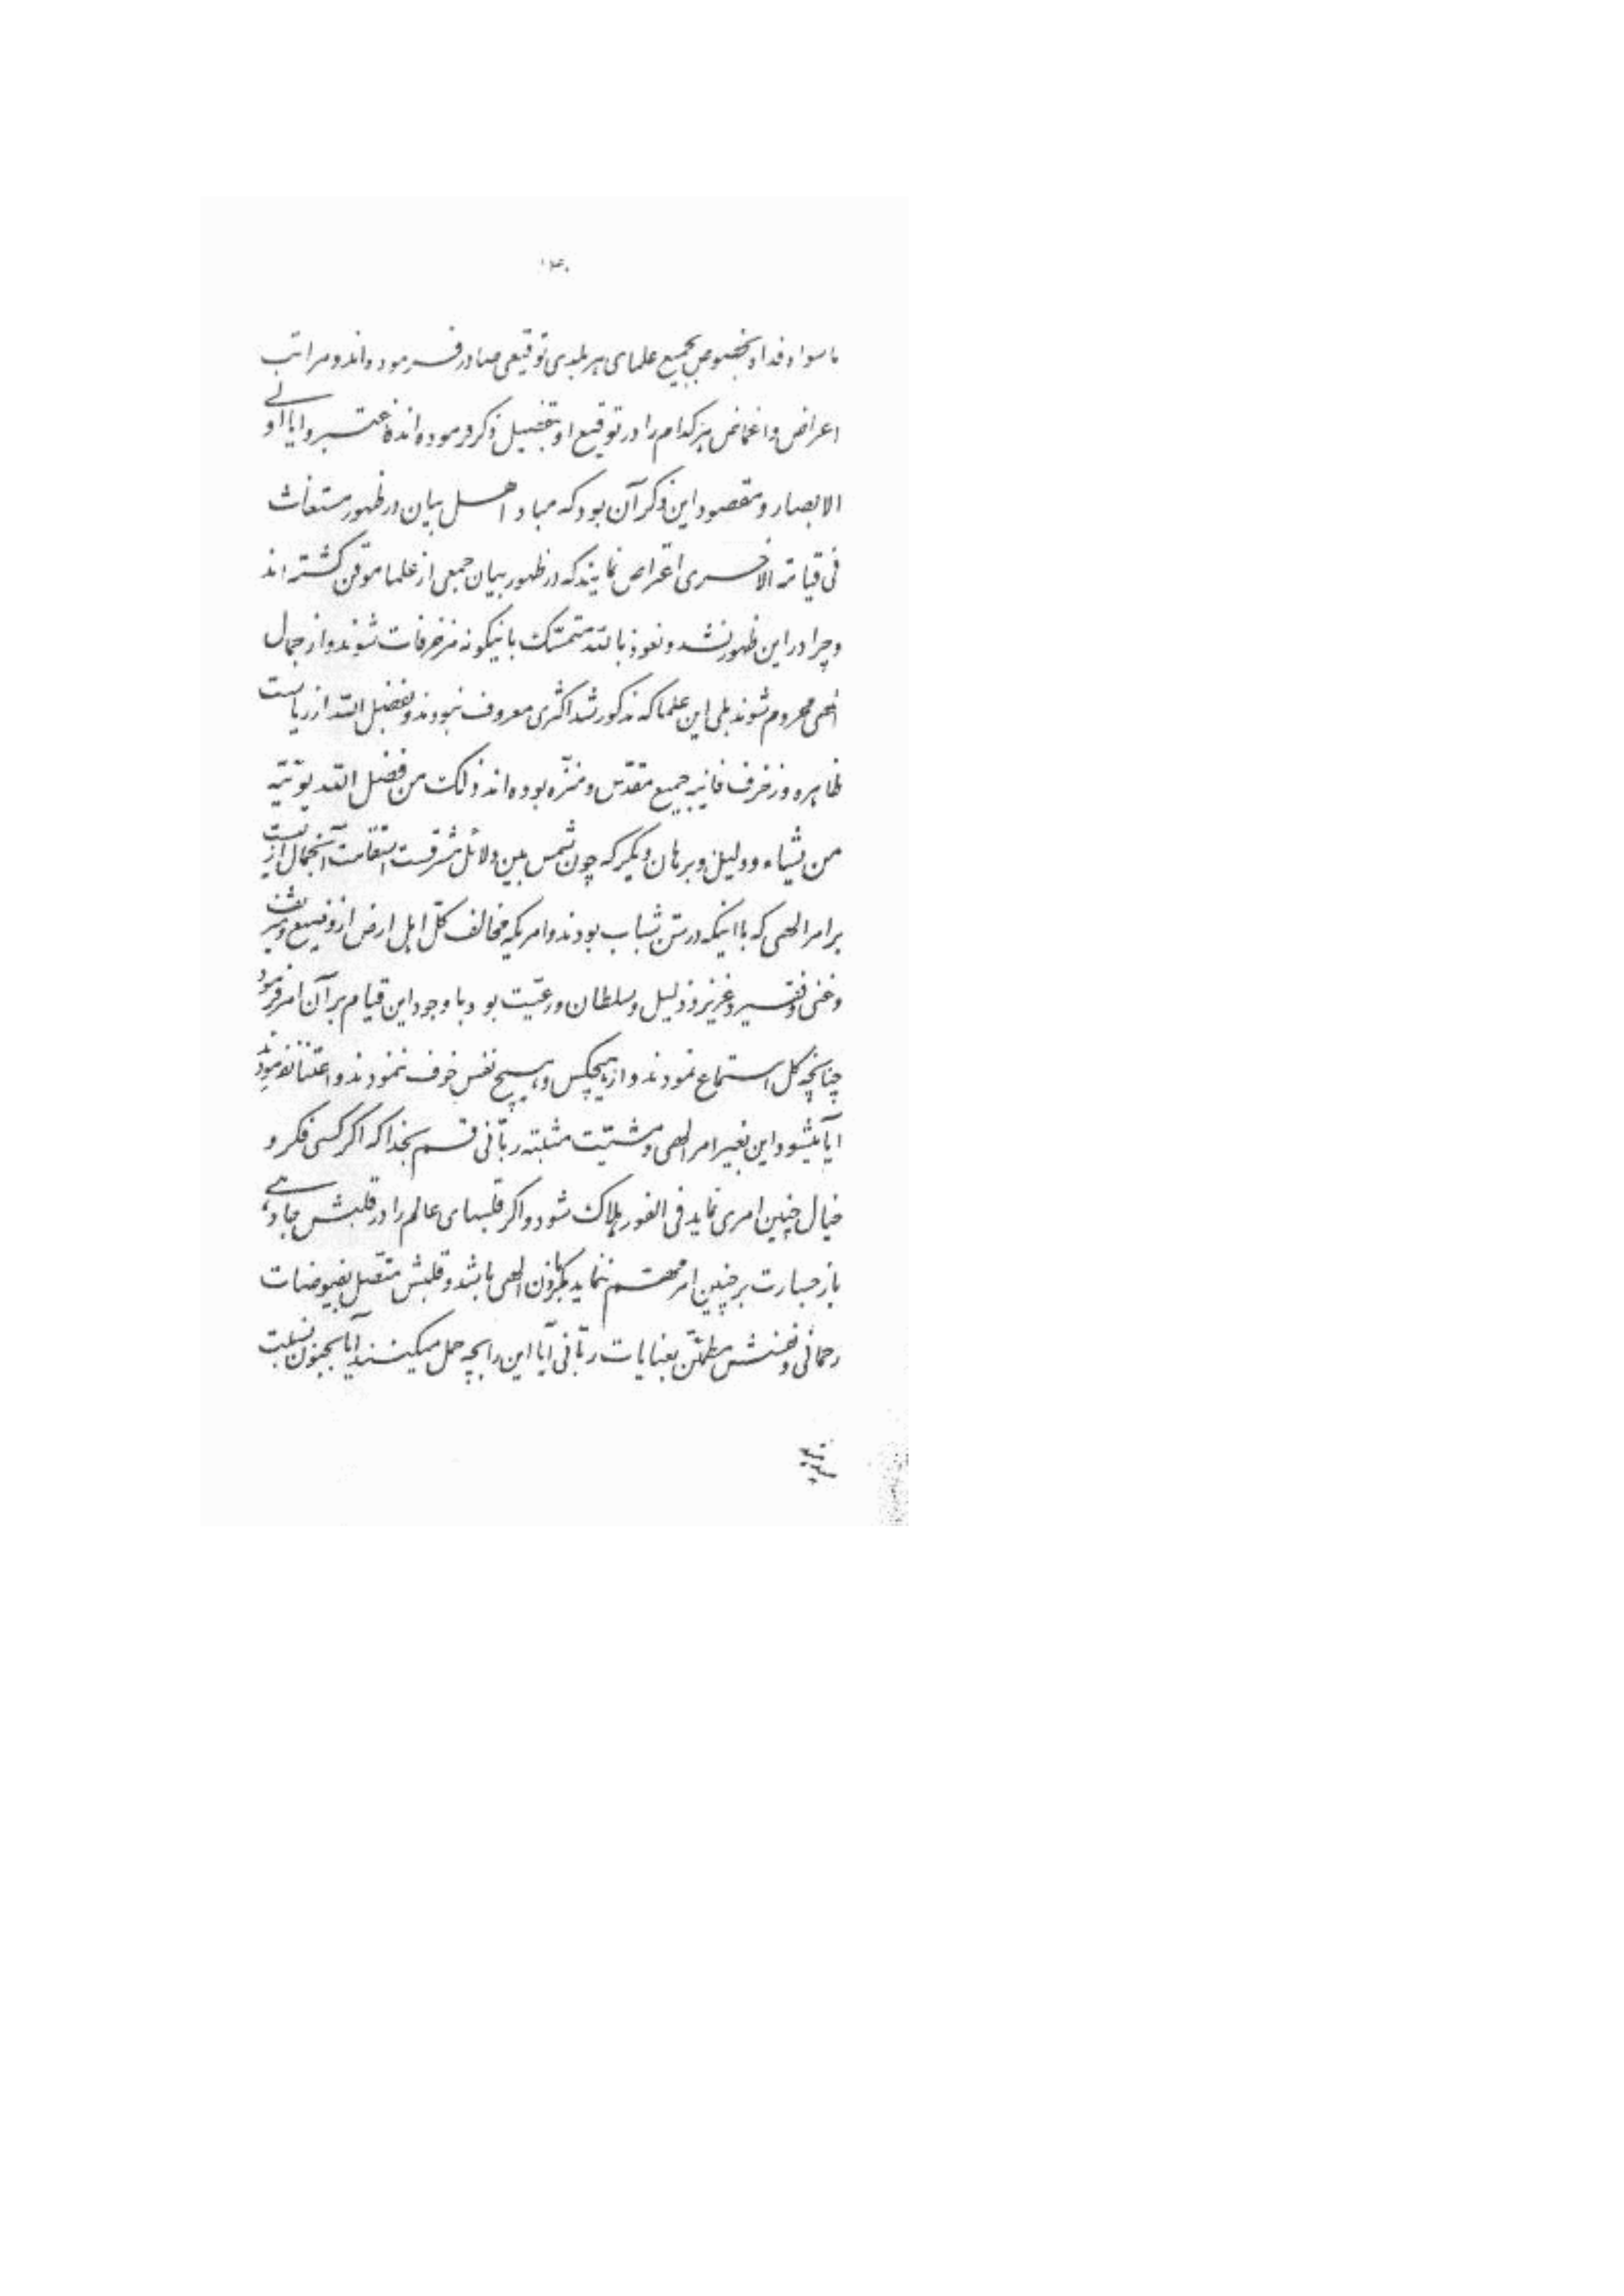 ۱۴۰
ما سواه فداه بخصوص بجمیع علمای هر بلدی توقیعی صادر فرموده‌اند و مراتب
اعراض و اغماض هر کدام را در توقیع او بتفصیل ذکر فرموده‌اند فاعتبروا یا اولی
الابصار و مقصود این ذکر آن بود که مباد اهل بیان در ظهور مستغاث
فی قیامة الاخری اعتراض نمایند که در ظهور بیان جمعی از علما موقن گشته‌اند
و چرا در این ظهور نشد و نعوذ بالله متمسّک باینگونه مزخرفات شوند و از جمال
الهی محروم شوند بلی این علما که مذکور شد اکثری معروف نبودند و بفضل الله از ریاست
ظاهره و زخرف فانیه جمیع مقدّس و منزّه بوده‌اند ذلک من فضل الله یؤتیه
من یشاء و دلیل و برهان دیگر که چون شمس بین دلائل مشرقست استقامت آنجمال ازلیست
بر امر الهی که با اینکه در سنّ شباب بودند و امریکه مخالف کلّ اهل ارض از وضیع و شریف
و غنی و فقیر و عزیز و ذلیل و سلطان و رعیّت بود با وجود این قیام بر آن امر فرمود
چنانچه کل استماع نمودند و از هیچکس و هیچ نفس خوف ننمودند و اعتنا نفرمودند
آیا میشود این بغیر امر الهی و مشیّت مثبته ربّانی قسم بخدا که اگر کسی فکر و
خیال چنین امری نماید فی الفور هلاک شود و اگر قلبهای عالم را در قلبش جا دهی
باز جسارت بر چنین امر مهمّ ننماید مگر باذن الهی باشد و قلبش متّصل بفیوضات
رحمانی و نفسش مطمئنّ بعنایات ربّانی آیا این را بچه حمل میکنند آیا بجنون نسبت